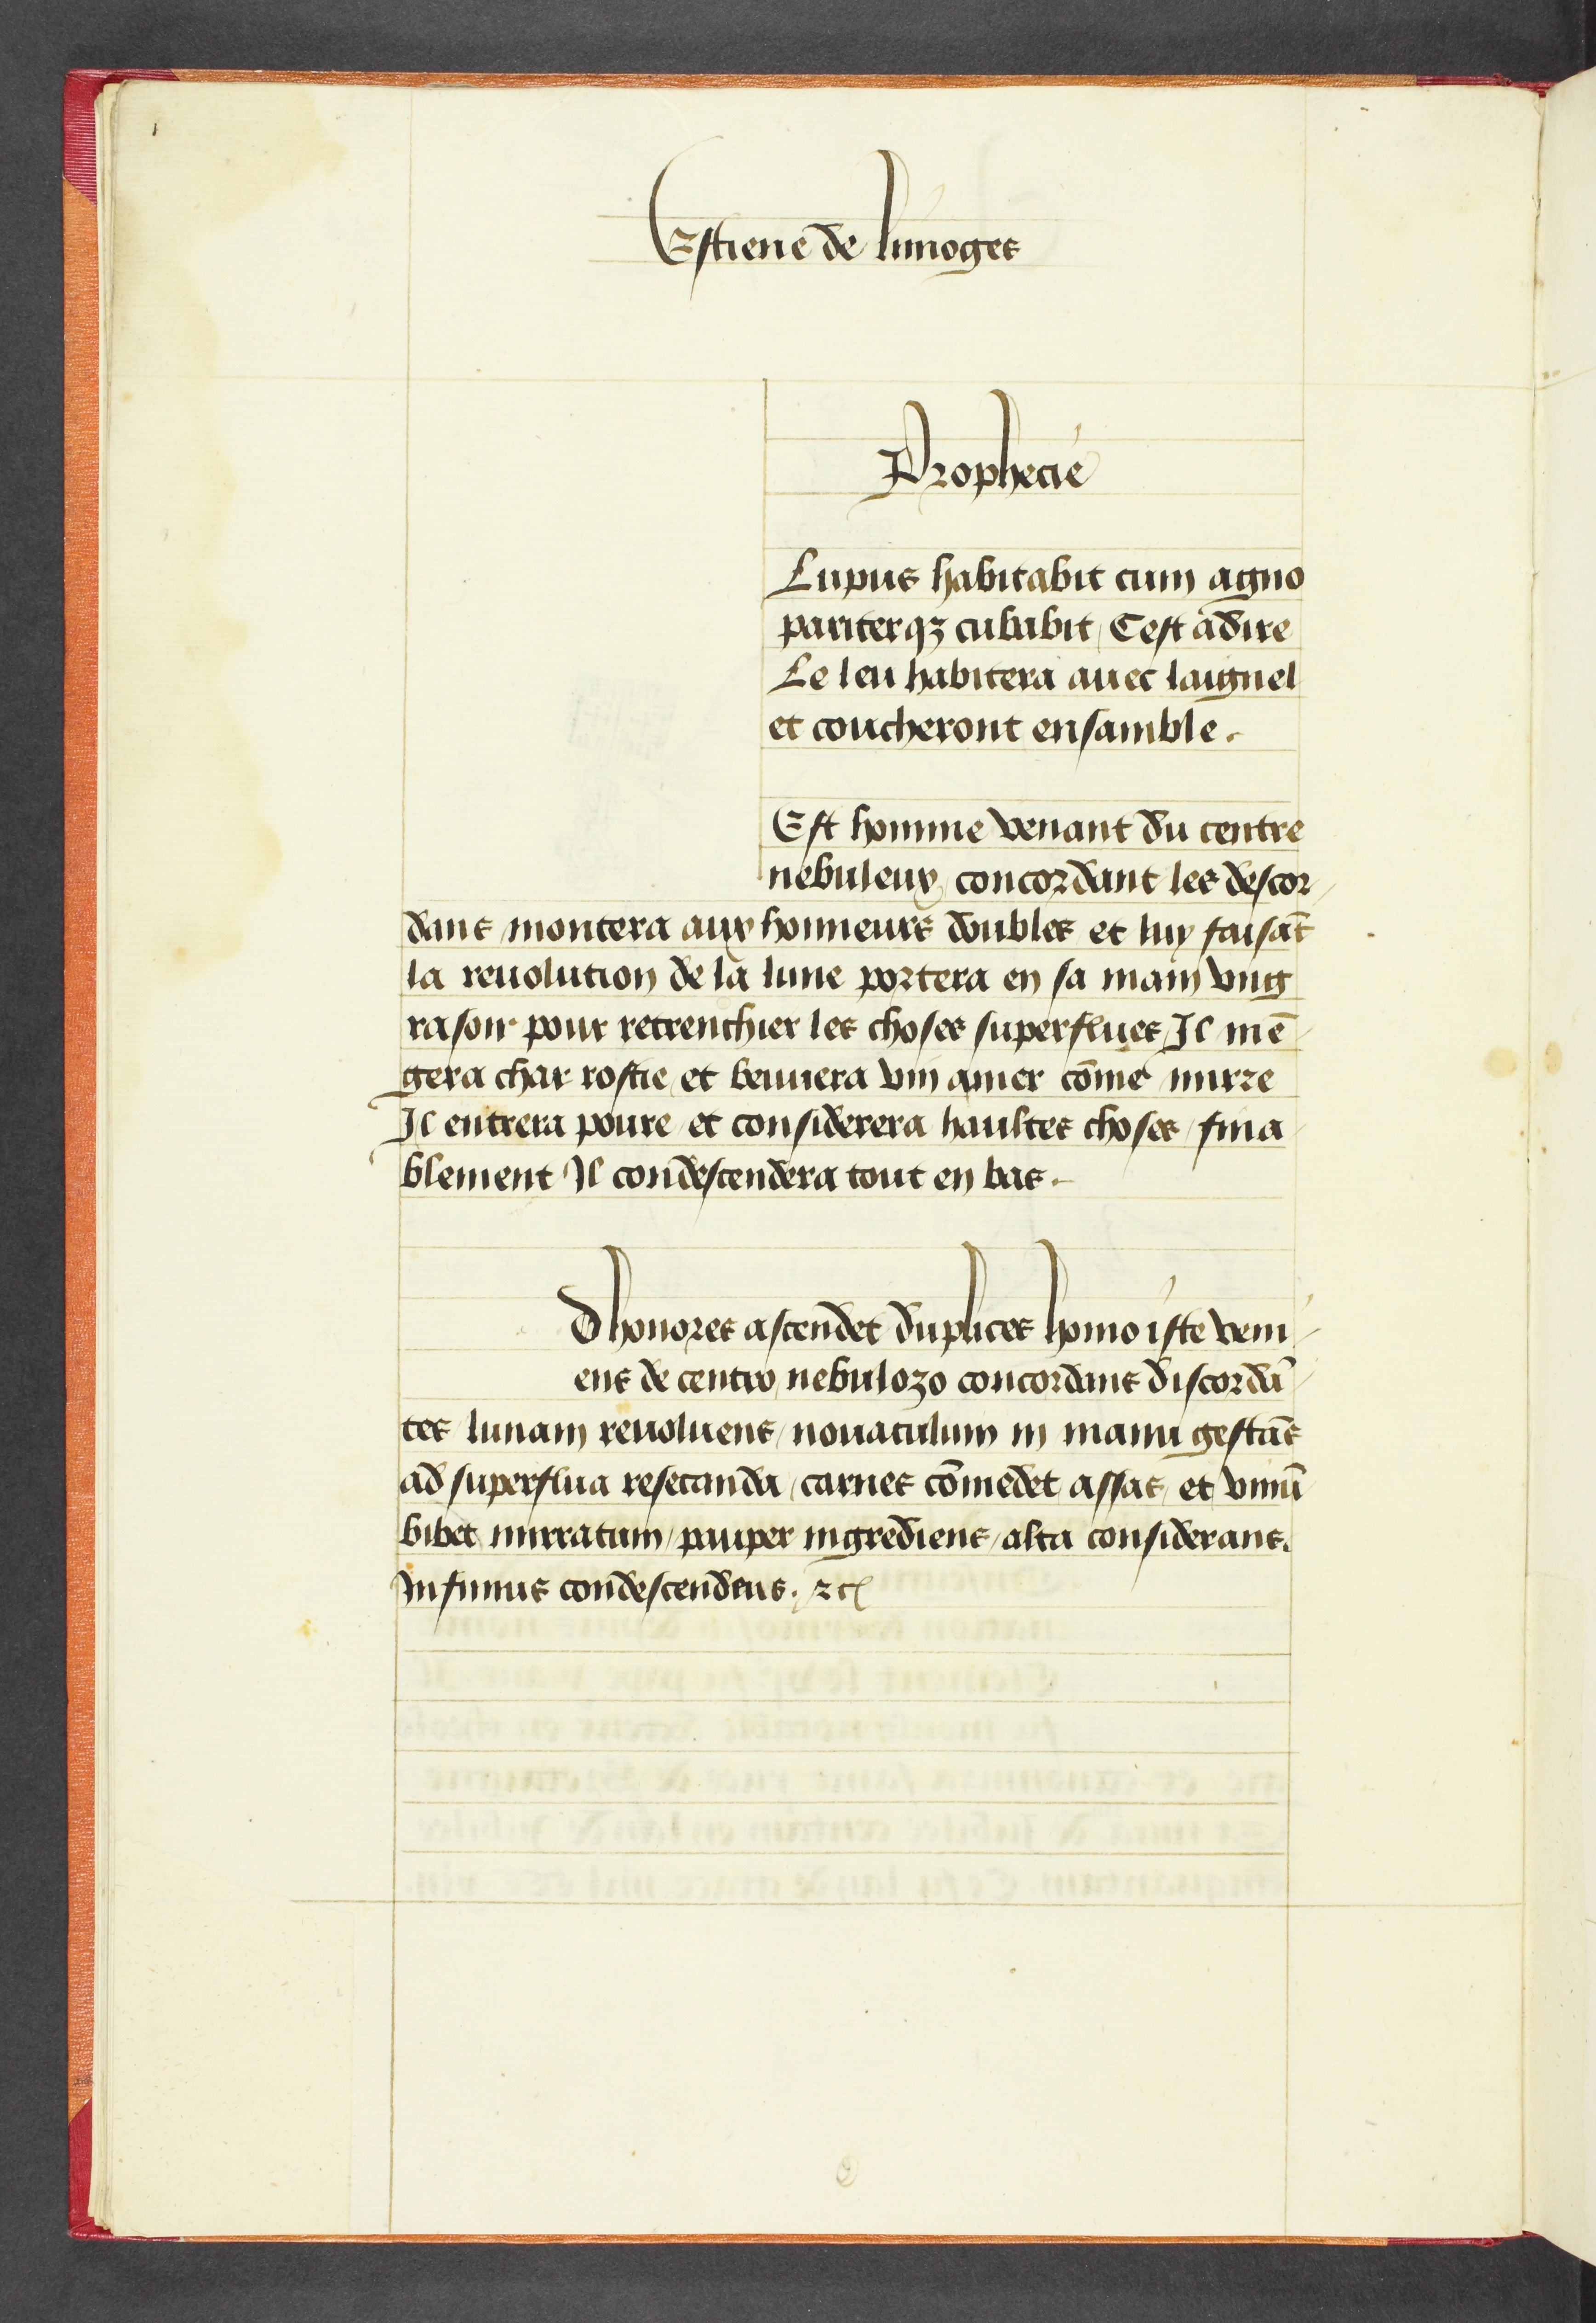 Estiene de limoges
Prophecie
Lupus habitabit cum agno
pariterqz cubabit / Cest adire
Le leu habitera auec laignel
et coucheront ensamble .
Est homme venant du centre
nebuleux concordant les descor /
dans montera aux honneurs doubles et luy faisāt
la reuolution de la lune portera en sa main vng
rasoir pour retrenchier les choses superflues / Il mē
gera char rostie / et beuuera vin amer cōme mirre
Il entrera poure / et considerera haultes choses / fina
blement Il condescendera tout en bas .
D honores ascendet duplices homo iste veni /
ens de centro nebulozo concordans discordā /
tes lunam reuoluens / nouaculum in manu gestās
ad superflua resecanda / carnes cōmedet assas / et vinū
bibet mirratum / pauper ingrediens / alta considerans .
Infimus condescendens . ⁊c